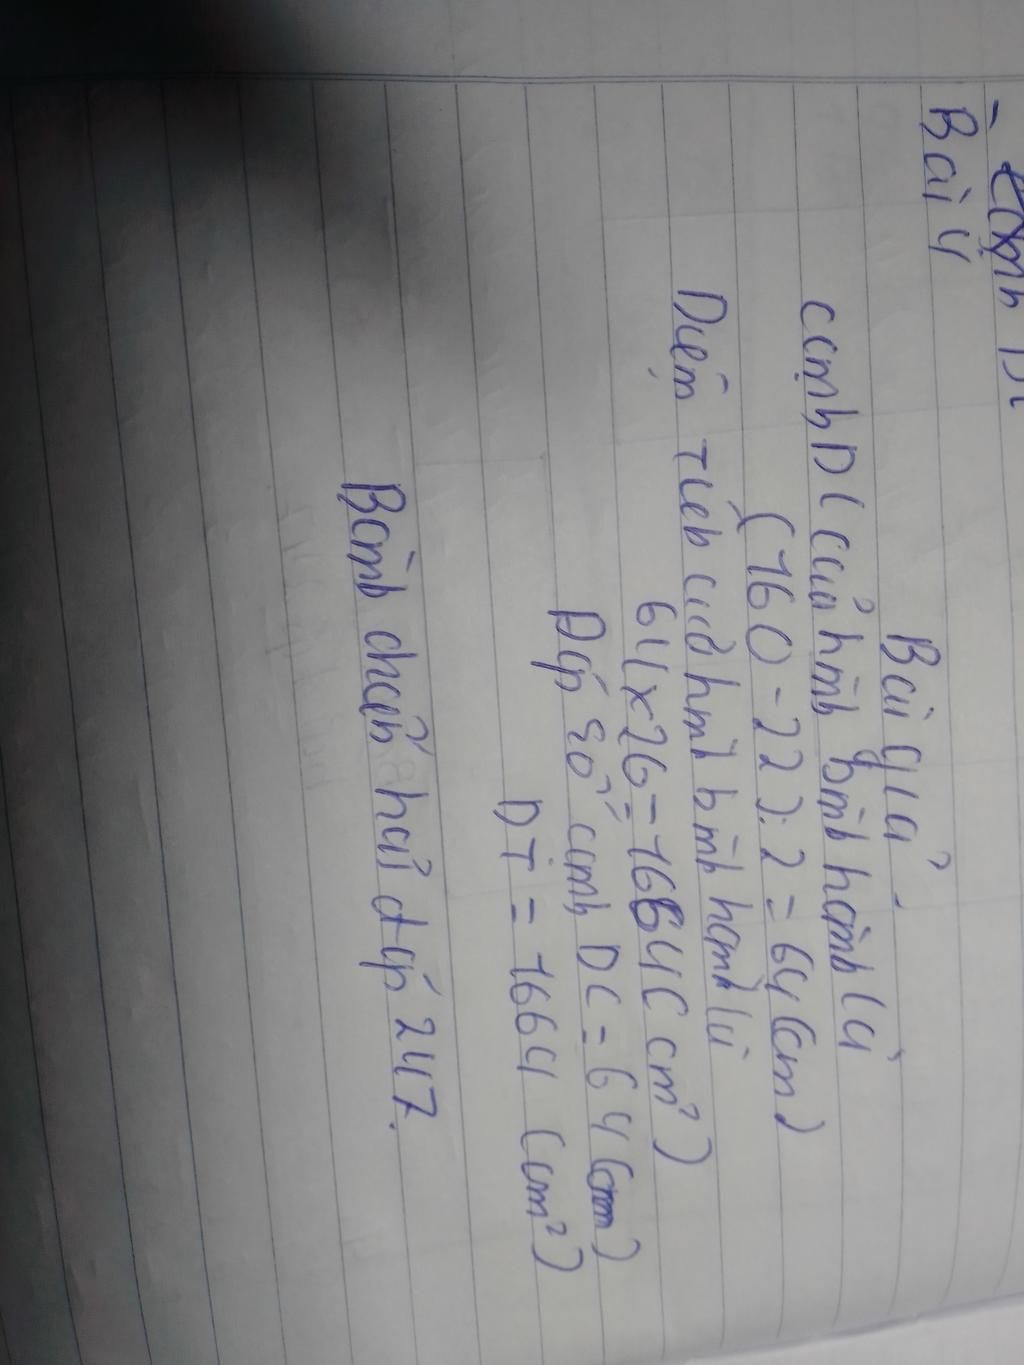 Bài 4
Bài giả
cạnh DC của hình bình hành là
(160 - 22) : 2 = 64 (cm)
Diện tích của hình bình hành là
64 x 26 = 1664 (cm²)
Đáp số: cạnh DC = 64 (cm)
DT = 1664 (cm²)
Bành chiến hải đáp 247.